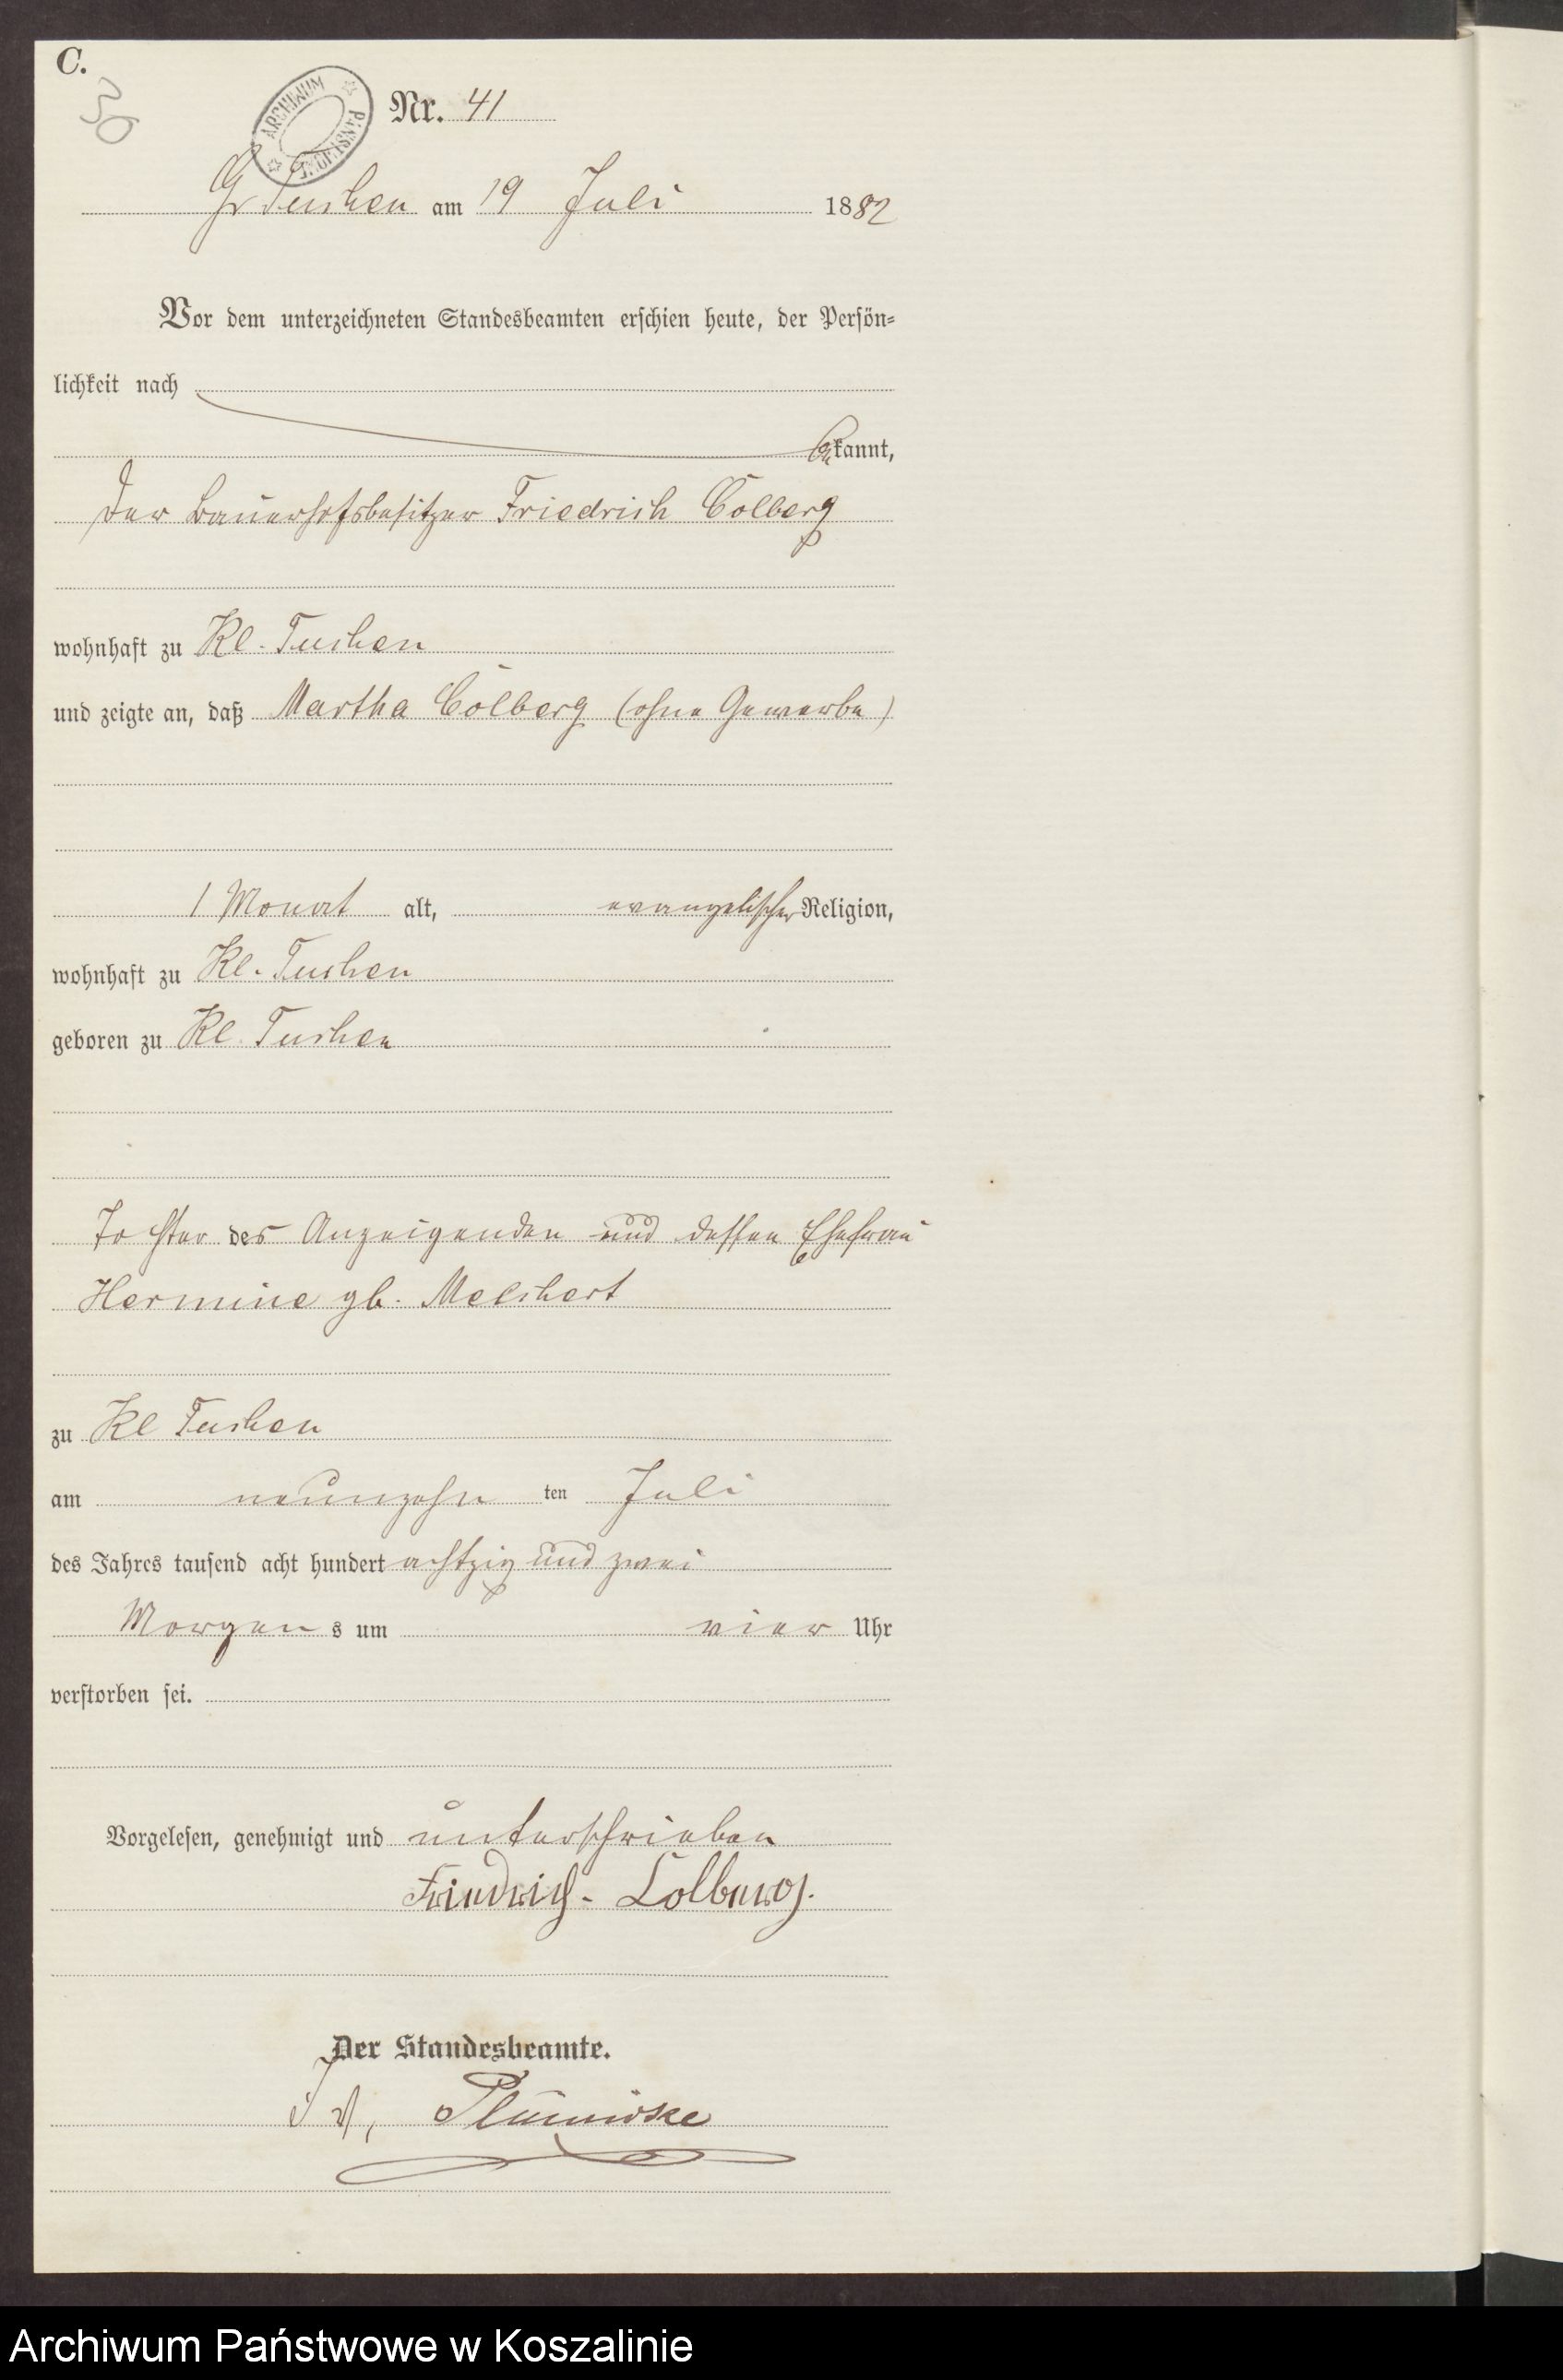 C.
39
ARCHIWUM PAŃSTWOWE
Nr. 41
Gr Tuchen am 19 Juli 1882
Vor dem unterzeichneten Standesbeamten erschien heute, der Persön-
lichkeit nach
bekannt,
Der Bauerhofsbesitzer Friedrich Colberg
wohnhaft zu Kl. Tuchen
und zeigte an, daß Martha Colberg (ohne Gewerbe)
1 Monat alt, evangelischer Religion,
wohnhaft zu Kl. Tuchen
geboren zu Kl. Tuchen
Tochter des Anzeigenden und dessen Ehefrau
Hermine gb. Melchert
zu Kl Tuchen
am neunzehn ten Juli
des Jahres tausend acht hundert achtzig und zwei
Morgens um vier Uhr
verstorben sei.
Vorgelesen, genehmigt und unterschrieben
Friedrich Colberg.
Der Standesbeamte.
Archiwum Państwowe w Koszalinie